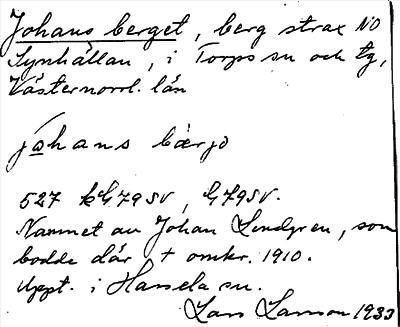 Johans berget, berg strax NO
Synhällan, i Torps sn och tg,
Västernorrl. län
johans bærjə
527 kG79SV, G79SV.
Namnet av Johan Lindgren, som
bodde där † omkr. 1910.
Uppt. i Hassela sn.
Lars Larsson 1933